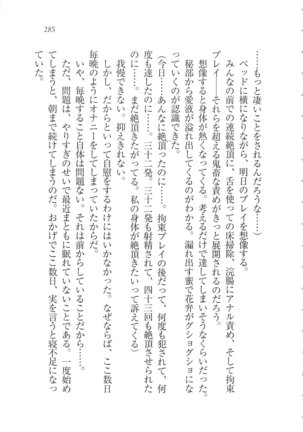 285
……もっと凄いことをされるんだろうな……）
ベッドに横になりながら、明日のプレイを想像する。
みんなの前での連続絶頂に、舌を使っての床掃除、浣腸にアナル責め、そして拘束
プレイ──それらを超える鬼畜な責めがきっと展開されるのだろう。
想像すると身体が熱くなってくる。考えるだけで達してしまいそうなくらいだった。
秘部から愛液が溢れ出してくるのがわかる。漏れ出す蜜で花弁がグショグショにな
っていくのが認識できた。
（今日……あんなに絶頂ったのに……拘束プレイの後だって、何度も犯されて、何
度も達したのに……三十二発、三十二発も射精されて、四十三回も絶頂させられた
のに……まだ絶頂きたがってる。私の身体が絶頂きたいって訴えてくる）
我慢できない。抑えきれない。
しかし、だからといって自慰をするわけにはいかなかった。なぜならば、ここ数日
毎晩のようにオナニーをしてしまっていたからだ。
いや、毎晩すること自体は問題ない。それは前からしていることだから……。
ただ、問題は、やりすぎのせいで最近まともに眠れていないことである。一度始め
てしまうと、朝まで続けてしまうのだ。おかげでここ数日、実を言うと寝不足になっ
ていた。